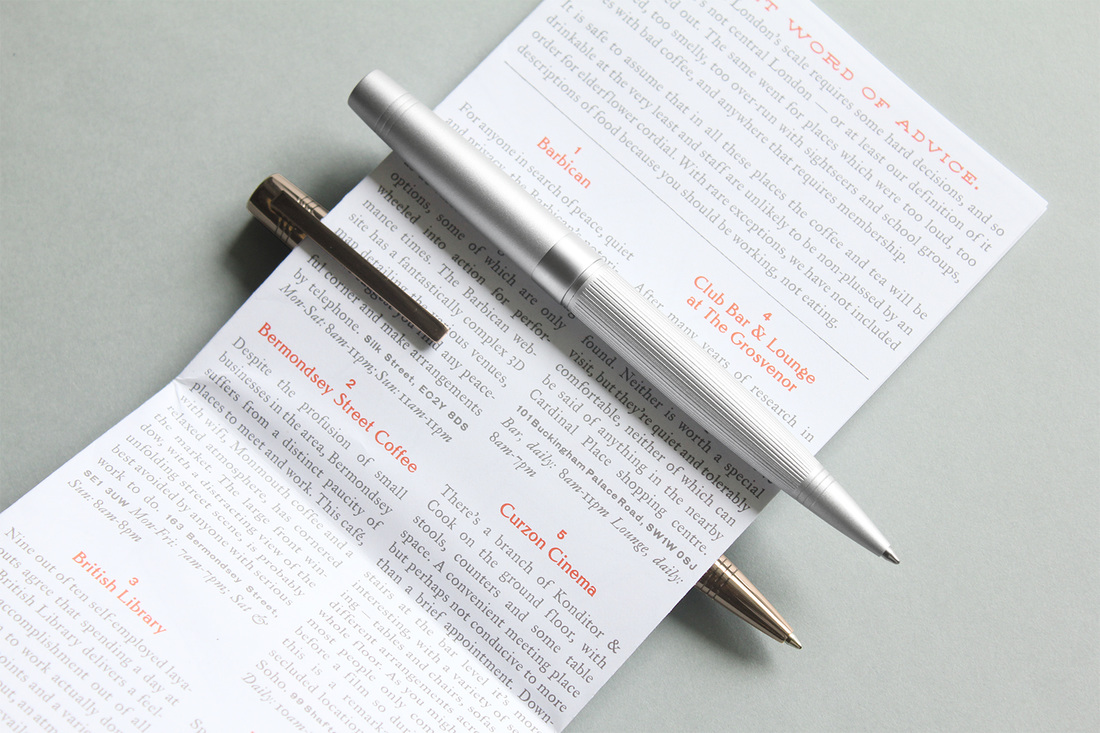 T WORD OF ADVICE.
London's scale requires some hard decisions, and so
's not central London — or at least our definition of it
nd out. The same went for places which were too loud, too
ed, too smelly, too over-run with sightseers and school groups,
es with bad coffee, and anywhere that requires membership.
It is safe to assume that in all these places the coffee and tea will be
drinkable at the very least and staff are unlikely to be non-plussed by an
order for elderflower cordial. With rare exceptions, we have not included
descriptions of food because you should be working, not eating.
1
Barbican
For anyone in search of peace, quiet
and privacy, the Barb
options, some of which are only
wheeled into action for perfor-
mance times. The Barbican web-
site has a fantastically complex 3D
map detailing the various venues,
find any peace-
ful corner and make arrangements
by telephone. Silk Street, EC2Y 8DS
Mon-Sat: 8am-11pm; Sun: 11am-11pm
2
Bermondsey Street Coffee
Despite the profusion of small
businesses in the area, Bermondsey
suffers from a distinct paucity of
places to meet and work. This café,
with wifi, Monmouth coffee and a
relaxed atmosphere, has cornered
the market. The large front win-
dow, with distracting view of the
unfolding street scene, is probably
best avoided by anyone with serious
work to do. 163 Bermondsey Street,
SE1 3UW Mon-Fri: 7am-7pm; Sat &
Sun: 8am-8pm
3
British Library
Nine out of often self-employed laya-
outs agree that spending a day at
British Library delivers a feel-
accomplishment out of all
to work actually don
oints and a varie
out, an atm
4
Club Bar & Lounge
at The Grosvenor
After many years of research in
found. Neither is worth a special
visit, but they're quiet and tolerably
comfortable, neither of which can
be said of anything in the nearby
Cardinal Place shopping centre.
101 Buckingham Palace Road, SW1W 0SJ
Bar, daily: 8am-11pm Lounge, daily:
8am-7pm
5
Curzon Cinema
There's a branch of Konditor &
Cook on the ground floor, with
stools, counters and some table
space. A convenient meeting place
but perhaps not conducive to more
than a brief appointment. Down-
stairs at the bar level it's more
interesting, with armchairs, sofas
ing tables and chairs
different arrangements
whole floor. As you
most people only
before a film so du
this is a remark
secluded location
Soho. 99 Shaft
Daily: 10am-